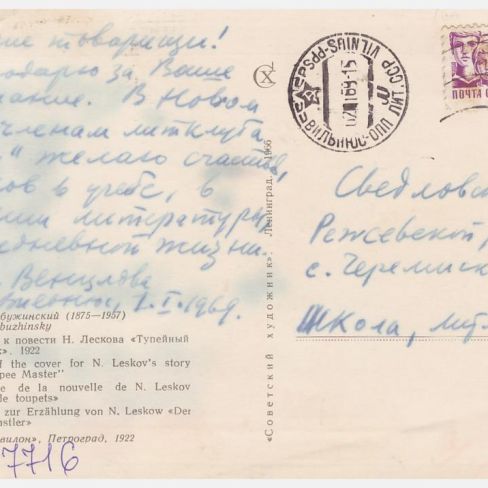 товарищи!
за Ваше
В Новом
членам литклуба
" желаю счастья,
в учебе, в
литературы,
жизни.
Венцлова
1.I.1969.
бужинский (1875—1957)
buzhinsky
к повести Н. Лескова «Тупейный
». 1922
f the cover for N. Leskov's story
pee Master"
e de la nouvelle de N. Leskov
le toupets»
zur Erzählung von N. Leskow «Der
nstler»
вилон», Петроград, 1922
7716
«Советский художник». Ленинград. 1966
VILNIUS-PPS
ЛИТ. ССР
ВИЛЬНЮС-ОПП
ПОЧТА С
Свердловс
Режевской р
с. Черемисс
Школа, лит